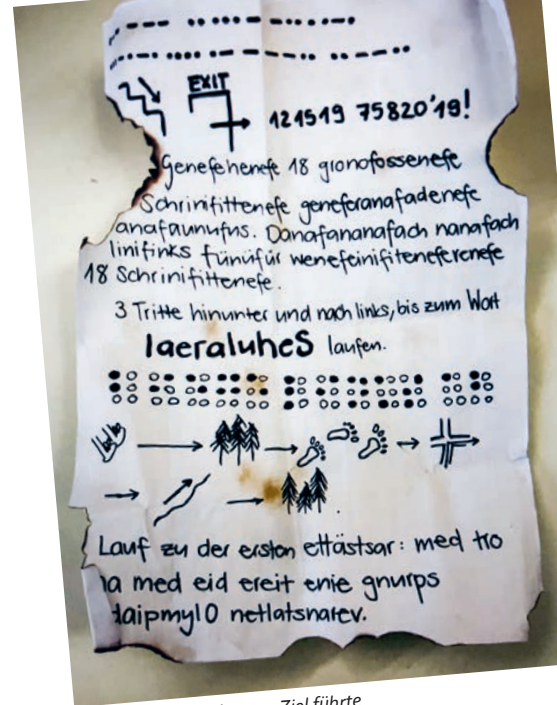 EXIT
121519 75820'19!
Genefehenefe 18 gronofossenefe
Schrinifittenefe geneferanafadenefe
anafaunufus. Danafananafach nanafach
linifinks fünüfür wenefeinifiteneferenefe
18 Schrinifittenefe.
3 Tritte hinunter und nach links, bis zum Wort
laeraluheS laufen.
Lauf zu der ersten ettästsar: med tro
na med eid ereit enie gnurps
daipmylO netlatsnarev.
Ziel führte